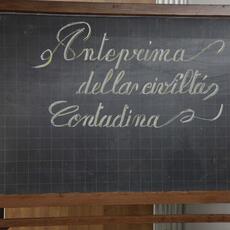 Anteprima
della civiltá
Contadina